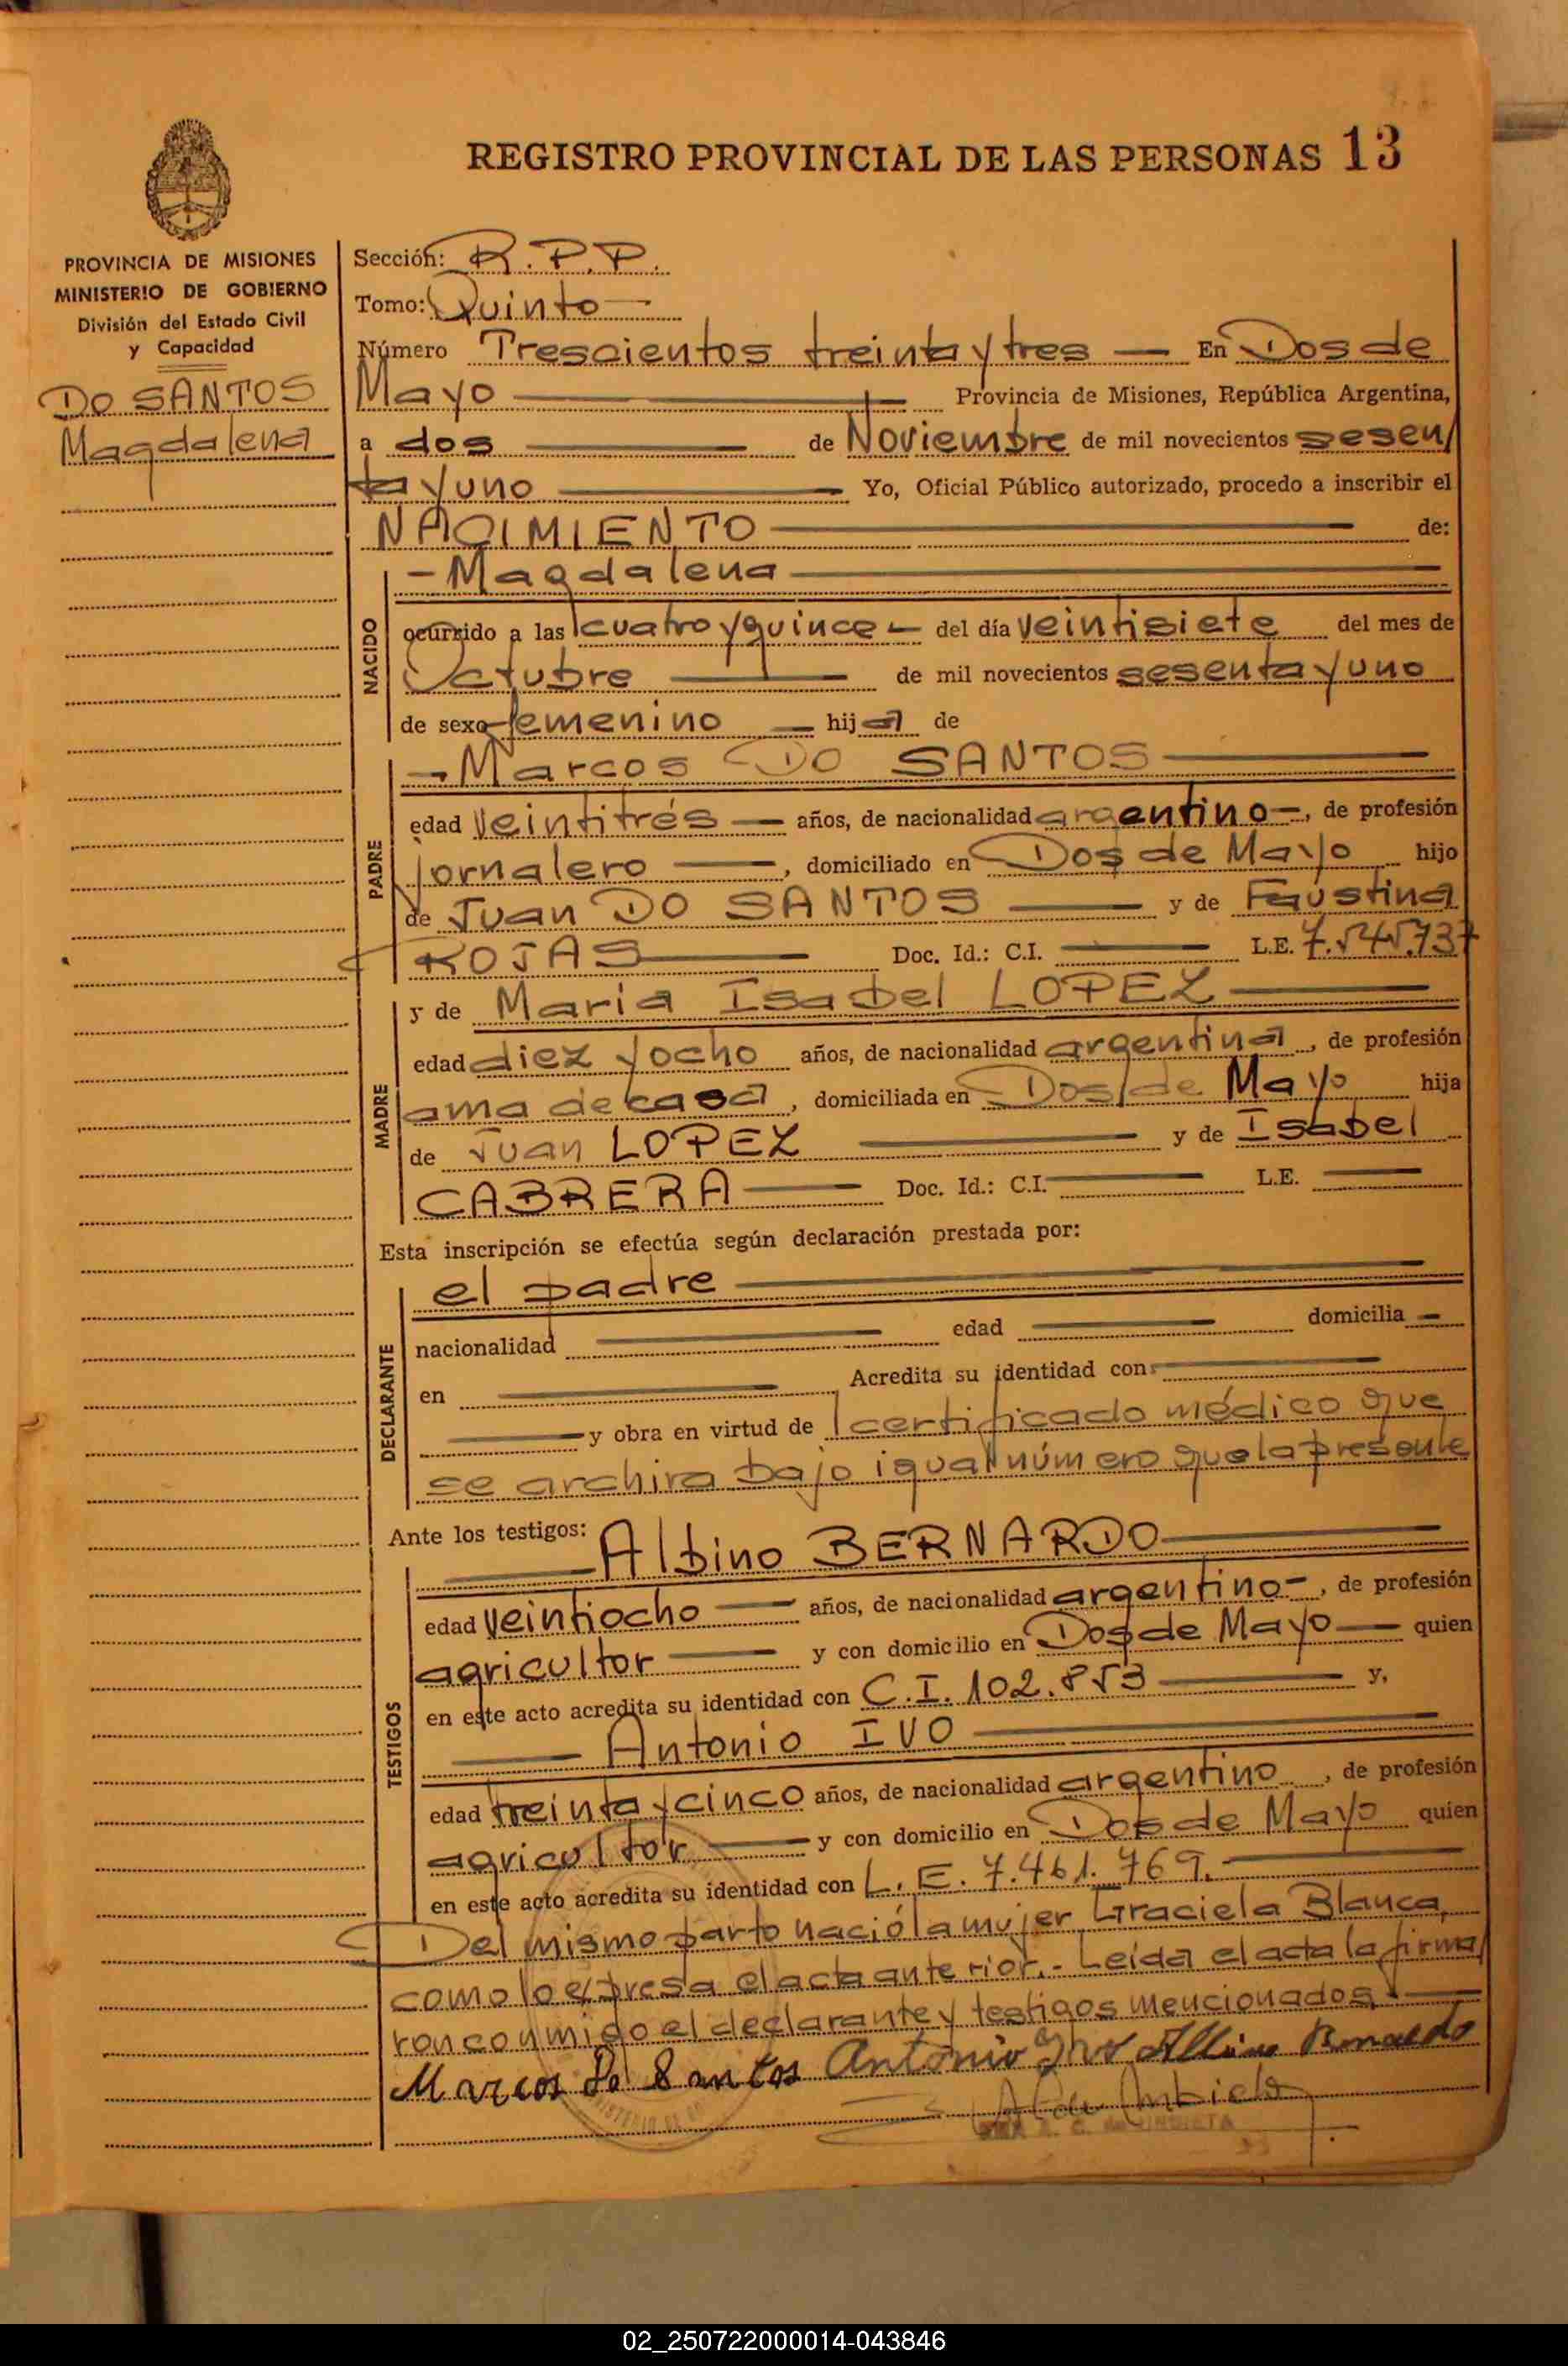 REGISTRO PROVINCIAL DE LAS PERSONAS 13
PROVINCIA DE MISIONES
MINISTERIO DE GOBIERNO
División del Estado Civil
y Capacidad
DO SANTOS
Magdalena
Sección: R.P.P.
Tomo: Quinto
Número Trescientos treinta y tres — En Dos de
Mayo — Provincia de Misiones, República Argentina,
a dos — de Noviembre de mil novecientos sesen/
ta y uno — Yo, Oficial Público autorizado, procedo a inscribir el
NACIMIENTO — de:
NACIDO
- Magdalena —
ocurrido a las cuatro y quince - del día veintisiete del mes de
Octubre — de mil novecientos sesenta y uno
de sexo femenino — hija de
PADRE
- Marcos DO SANTOS —
edad veintitrés — años, de nacionalidad argentino -, de profesión
jornalero —, domiciliado en Dos de Mayo hijo
de Juan DO SANTOS — y de Faustina
ROJAS — Doc. Id.: C.I. — L.E. 7.545.737
MADRE
y de Maria Isabel LOPEZ —
edad diez y ocho años, de nacionalidad argentina, de profesión
ama de casa, domiciliada en Dos de Mayo hija
de Juan LOPEZ — y de Isabel
CABRERA — Doc. Id.: C.I. — L.E. —
Esta inscripción se efectúa según declaración prestada por:
DECLARANTE
el padre —
nacionalidad — edad — domicilia —
en — Acredita su identidad con: —
— y obra en virtud de certificado médico que
se archiva bajo igual número que la presente
Ante los testigos:
TESTIGOS
— Albino BERNARDO —
edad veintiocho — años, de nacionalidad argentino -, de profesión
agricultor — y con domicilio en Dos de Mayo — quien
en este acto acredita su identidad con C.I. 102.853 — y,
— Antonio IVO —
edad treinta y cinco años, de nacionalidad argentino, de profesión
agricultor — y con domicilio en Dos de Mayo quien
en este acto acredita su identidad con L.E. 7.461.769. —
Del mismo parto nació la mujer Graciela Blanca,
como lo expresa el acta anterior.- Leída el acta la firma/
ron conmigo el declarante y testigos mencionados. —
Marcos Do Santos Antonio Ivo Albino Bernardo
02_250722000014-043846